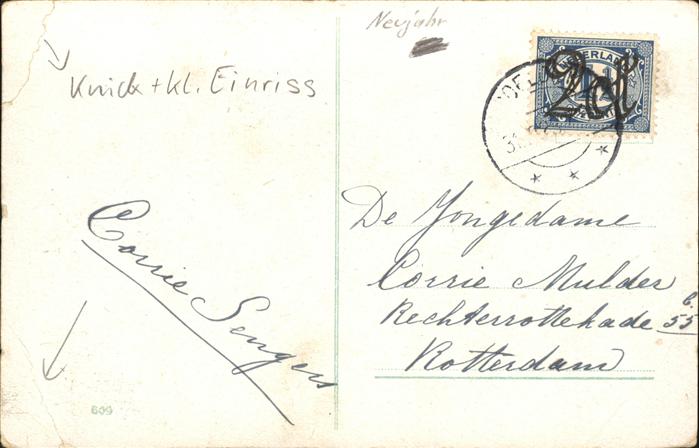 Neujahr
Knick + kl. Einriss
NEDERLAND
2 ct
31
De Jongedame
Corrie Mulder
Rechterrottekade 55 b.
Rotterdam
Corrie Sengers
609